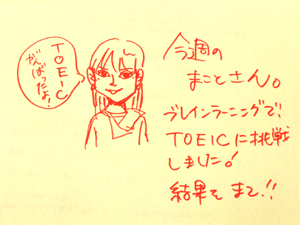 TOEIC
がんばったよ!
今週の
まことさん。
ブレインラーニングで!
TOEICに挑戦
しました!
結果をまて!!